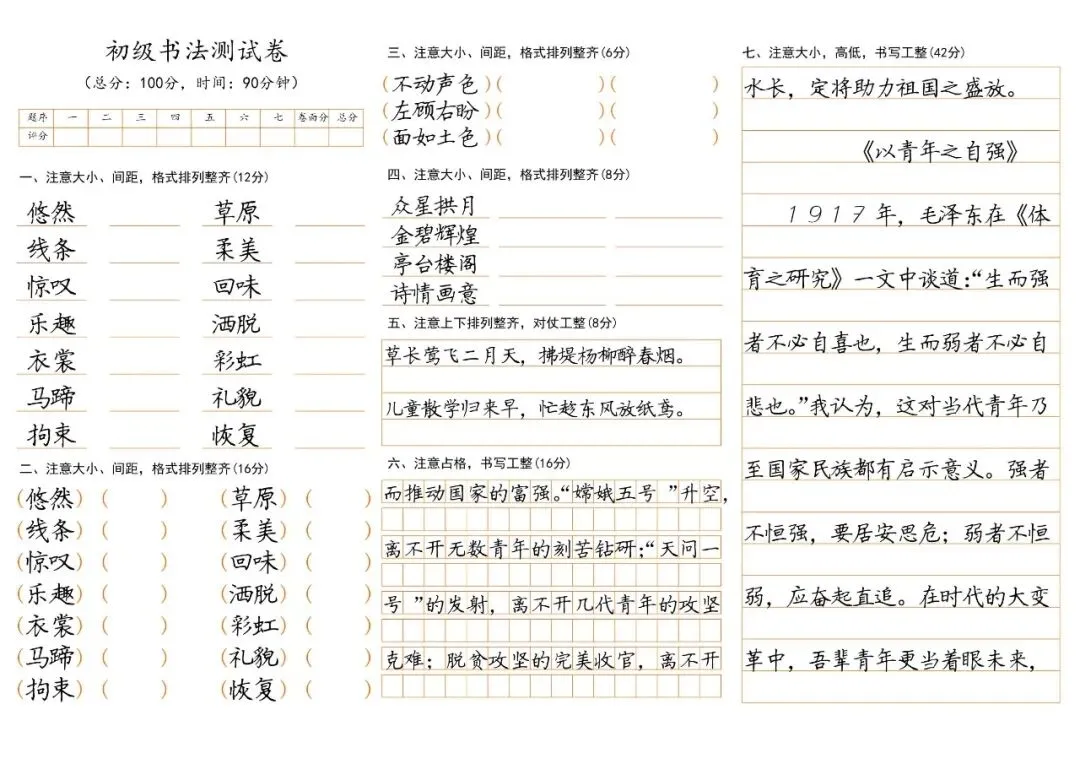 初级书法测试卷
（总分：100分，时间：90分钟）
题序 一 二 三 四 五 六 七 卷面分 总分
评分
一、注意大小、间距，格式排列整齐(12分)
悠然 草原
线条 柔美
惊叹 回味
乐趣 洒脱
衣裳 彩虹
马蹄 礼貌
拘束 恢复
二、注意大小、间距，格式排列整齐(16分)
(悠然) ( ) (草原) ( )
(线条) ( ) (柔美) ( )
(惊叹) ( ) (回味) ( )
(乐趣) ( ) (洒脱) ( )
(衣裳) ( ) (彩虹) ( )
(马蹄) ( ) (礼貌) ( )
(拘束) ( ) (恢复) ( )
三、注意大小、间距，格式排列整齐(6分)
(不动声色) ( ) ( )
(左顾右盼) ( ) ( )
(面如土色) ( ) ( )
四、注意大小、间距，格式排列整齐(8分)
众星拱月
金碧辉煌
亭台楼阁
诗情画意
五、注意上下排列整齐，对仗工整(8分)
草长莺飞二月天，拂堤杨柳醉春烟。
儿童散学归来早，忙趁东风放纸鸢。
六、注意占格，书写工整(16分)
而推动国家的富强。“嫦娥五号 ”升空，
离不开无数青年的刻苦钻研；“天问一
号 ”的发射，离不开几代青年的攻坚
克难；脱贫攻坚的完美收官，离不开
七、注意大小，高低，书写工整(42分)
水长，定将助力祖国之盛放。
《以青年之自强》
1917年，毛泽东在《体
育之研究》一文中谈道：“生而强
者不必自喜也，生而弱者不必自
悲也。”我认为，这对当代青年乃
至国家民族都有启示意义。强者
不恒强，要居安思危；弱者不恒
弱，应奋起直追。在时代的大变
革中，吾辈青年更当着眼未来，